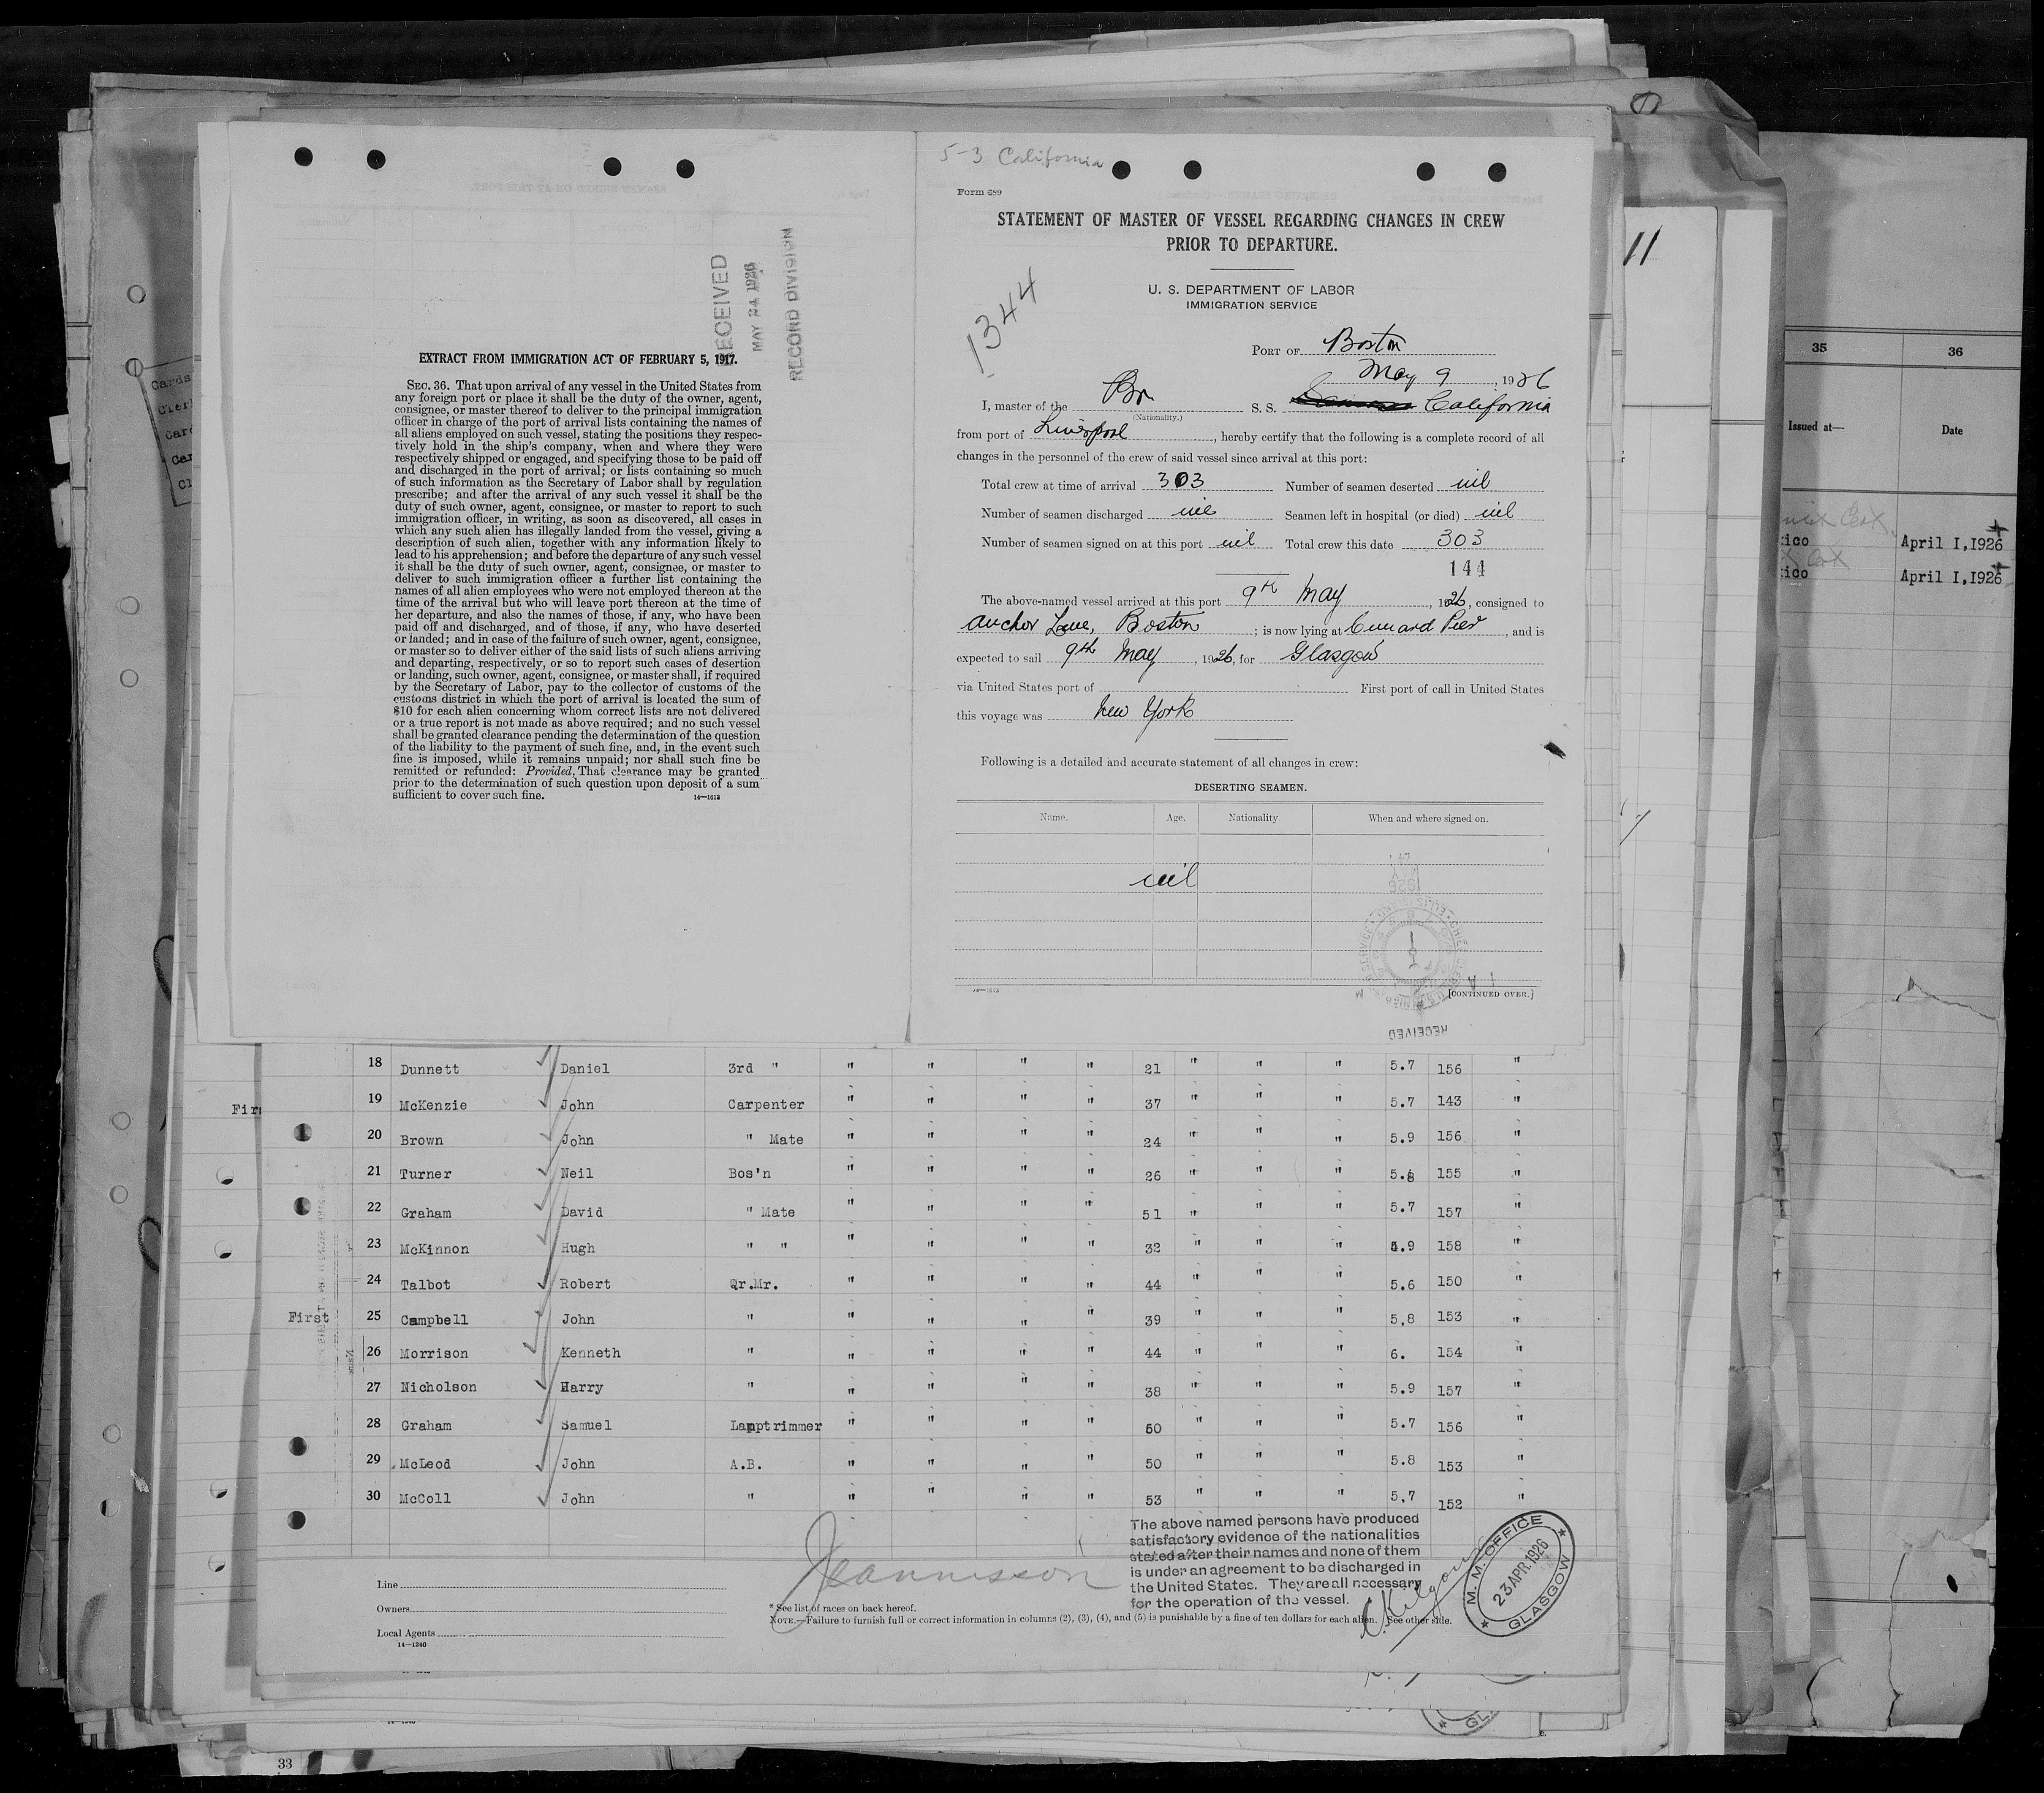 5-3 California
Form 689
STATEMENT OF MASTER OF VESSEL REGARDING CHANGES IN CREW
PRIOR TO DEPARTURE.
U. S. DEPARTMENT OF LABOR
IMMIGRATION SERVICE
1344
PORT OF Boston
May 9, 1926
I, master of the Br S. S. California
(Nationality.)
from port of Liverpool, hereby certify that the following is a complete record of all
changes in the personnel of the crew of said vessel since arrival at this port:
Total crew at time of arrival 303 Number of seamen deserted nil
Number of seamen discharged nil Seamen left in hospital (or died) nil
Number of seamen signed on at this port nil Total crew this date 303
144
The above-named vessel arrived at this port 9th May, 1926, consigned to
Anchor Line, Boston; is now lying at Cunard Pier, and is
expected to sail 9th May, 1926, for Glasgow
via United States port of First port of call in United States
this voyage was New York
Following is a detailed and accurate statement of all changes in crew:
DESERTING SEAMEN.
Name. Age. Nationality When and where signed on.
nil
14—1613
[CONTINUED OVER.]
RECEIVED
RECEIVED
MAY 24 1926
RECORD DIVISION
EXTRACT FROM IMMIGRATION ACT OF FEBRUARY 5, 1917.
SEC. 36. That upon arrival of any vessel in the United States from
any foreign port or place it shall be the duty of the owner, agent,
consignee, or master thereof to deliver to the principal immigration
officer in charge of the port of arrival lists containing the names of
all aliens employed on such vessel, stating the positions they respec-
tively hold in the ship's company, when and where they were
respectively shipped or engaged, and specifying those to be paid off
and discharged in the port of arrival; or lists containing so much
of such information as the Secretary of Labor shall by regulation
prescribe; and after the arrival of any such vessel it shall be the
duty of such owner, agent, consignee, or master to report to such
immigration officer, in writing, as soon as discovered, all cases in
which any such alien has illegally landed from the vessel, giving a
description of such alien, together with any information likely to
lead to his apprehension; and before the departure of any such vessel
it shall be the duty of such owner, agent, consignee, or master to
deliver to such immigration officer a further list containing the
names of all alien employees who were not employed thereon at the
time of the arrival but who will leave port thereon at the time of
her departure, and also the names of those, if any, who have been
paid off and discharged, and of those, if any, who have deserted
or landed; and in case of the failure of such owner, agent, consignee,
or master so to deliver either of the said lists of such aliens arriving
and departing, respectively, or so to report such cases of desertion
or landing, such owner, agent, consignee, or master shall, if required
by the Secretary of Labor, pay to the collector of customs of the
customs district in which the port of arrival is located the sum of
$10 for each alien concerning whom correct lists are not delivered
or a true report is not made as above required; and no such vessel
shall be granted clearance pending the determination of the question
of the liability to the payment of such fine, and, in the event such
fine is imposed, while it remains unpaid; nor shall such fine be
remitted or refunded: Provided, That clearance may be granted
prior to the determination of such question upon deposit of a sum
sufficient to cover such fine.
14—1613
11
35 36
Issued at— Date
ico April I,1926
ico April I,1926
18 Dunnett Daniel 3rd " " " " " 21 " " " 5.7 156 "
19 McKenzie John Carpenter " " " " 37 " " " 5.7 143 "
20 Brown John " Mate " " " " 24 " " " 5.9 156 "
21 Turner Neil Bos'n " " " " 26 " " " 5.8 155 "
22 Graham David " Mate " " " " 51 " " " 5.7 157 "
23 McKinnon Hugh " " " " " " 32 " " " 5.9 158 "
24 Talbot Robert Qr.Mr. " " " " 44 " " " 5.6 150 "
First 25 Campbell John " " " " " 39 " " " 5,8 153 "
26 Morrison Kenneth " " " " " 44 " " " 6. 154 "
27 Nicholson Harry " " " " " 38 " " " 5.9 157 "
28 Graham Samuel Lamptrimmer " " " " 50 " " " 5.7 156 "
29 McLeod John A.B. " " " " 50 " " " 5.8 153 "
30 McColl John " " " " " 53 " " " 5,7 152 "
The above named persons have produced
satisfactory evidence of the nationalities
stated after their names and none of them
is under an agreement to be discharged in
the United States. They are all necessary
for the operation of the vessel.
Line
Owners
Local Agents
14—1240
* See list of races on back hereof.
NOTE.—Failure to furnish full or correct information in columns (2), (3), (4), and (5) is punishable by a fine of ten dollars for each alien. See other side.
M. M. OFFICE
23 APR. 1926
GLASGOW
33